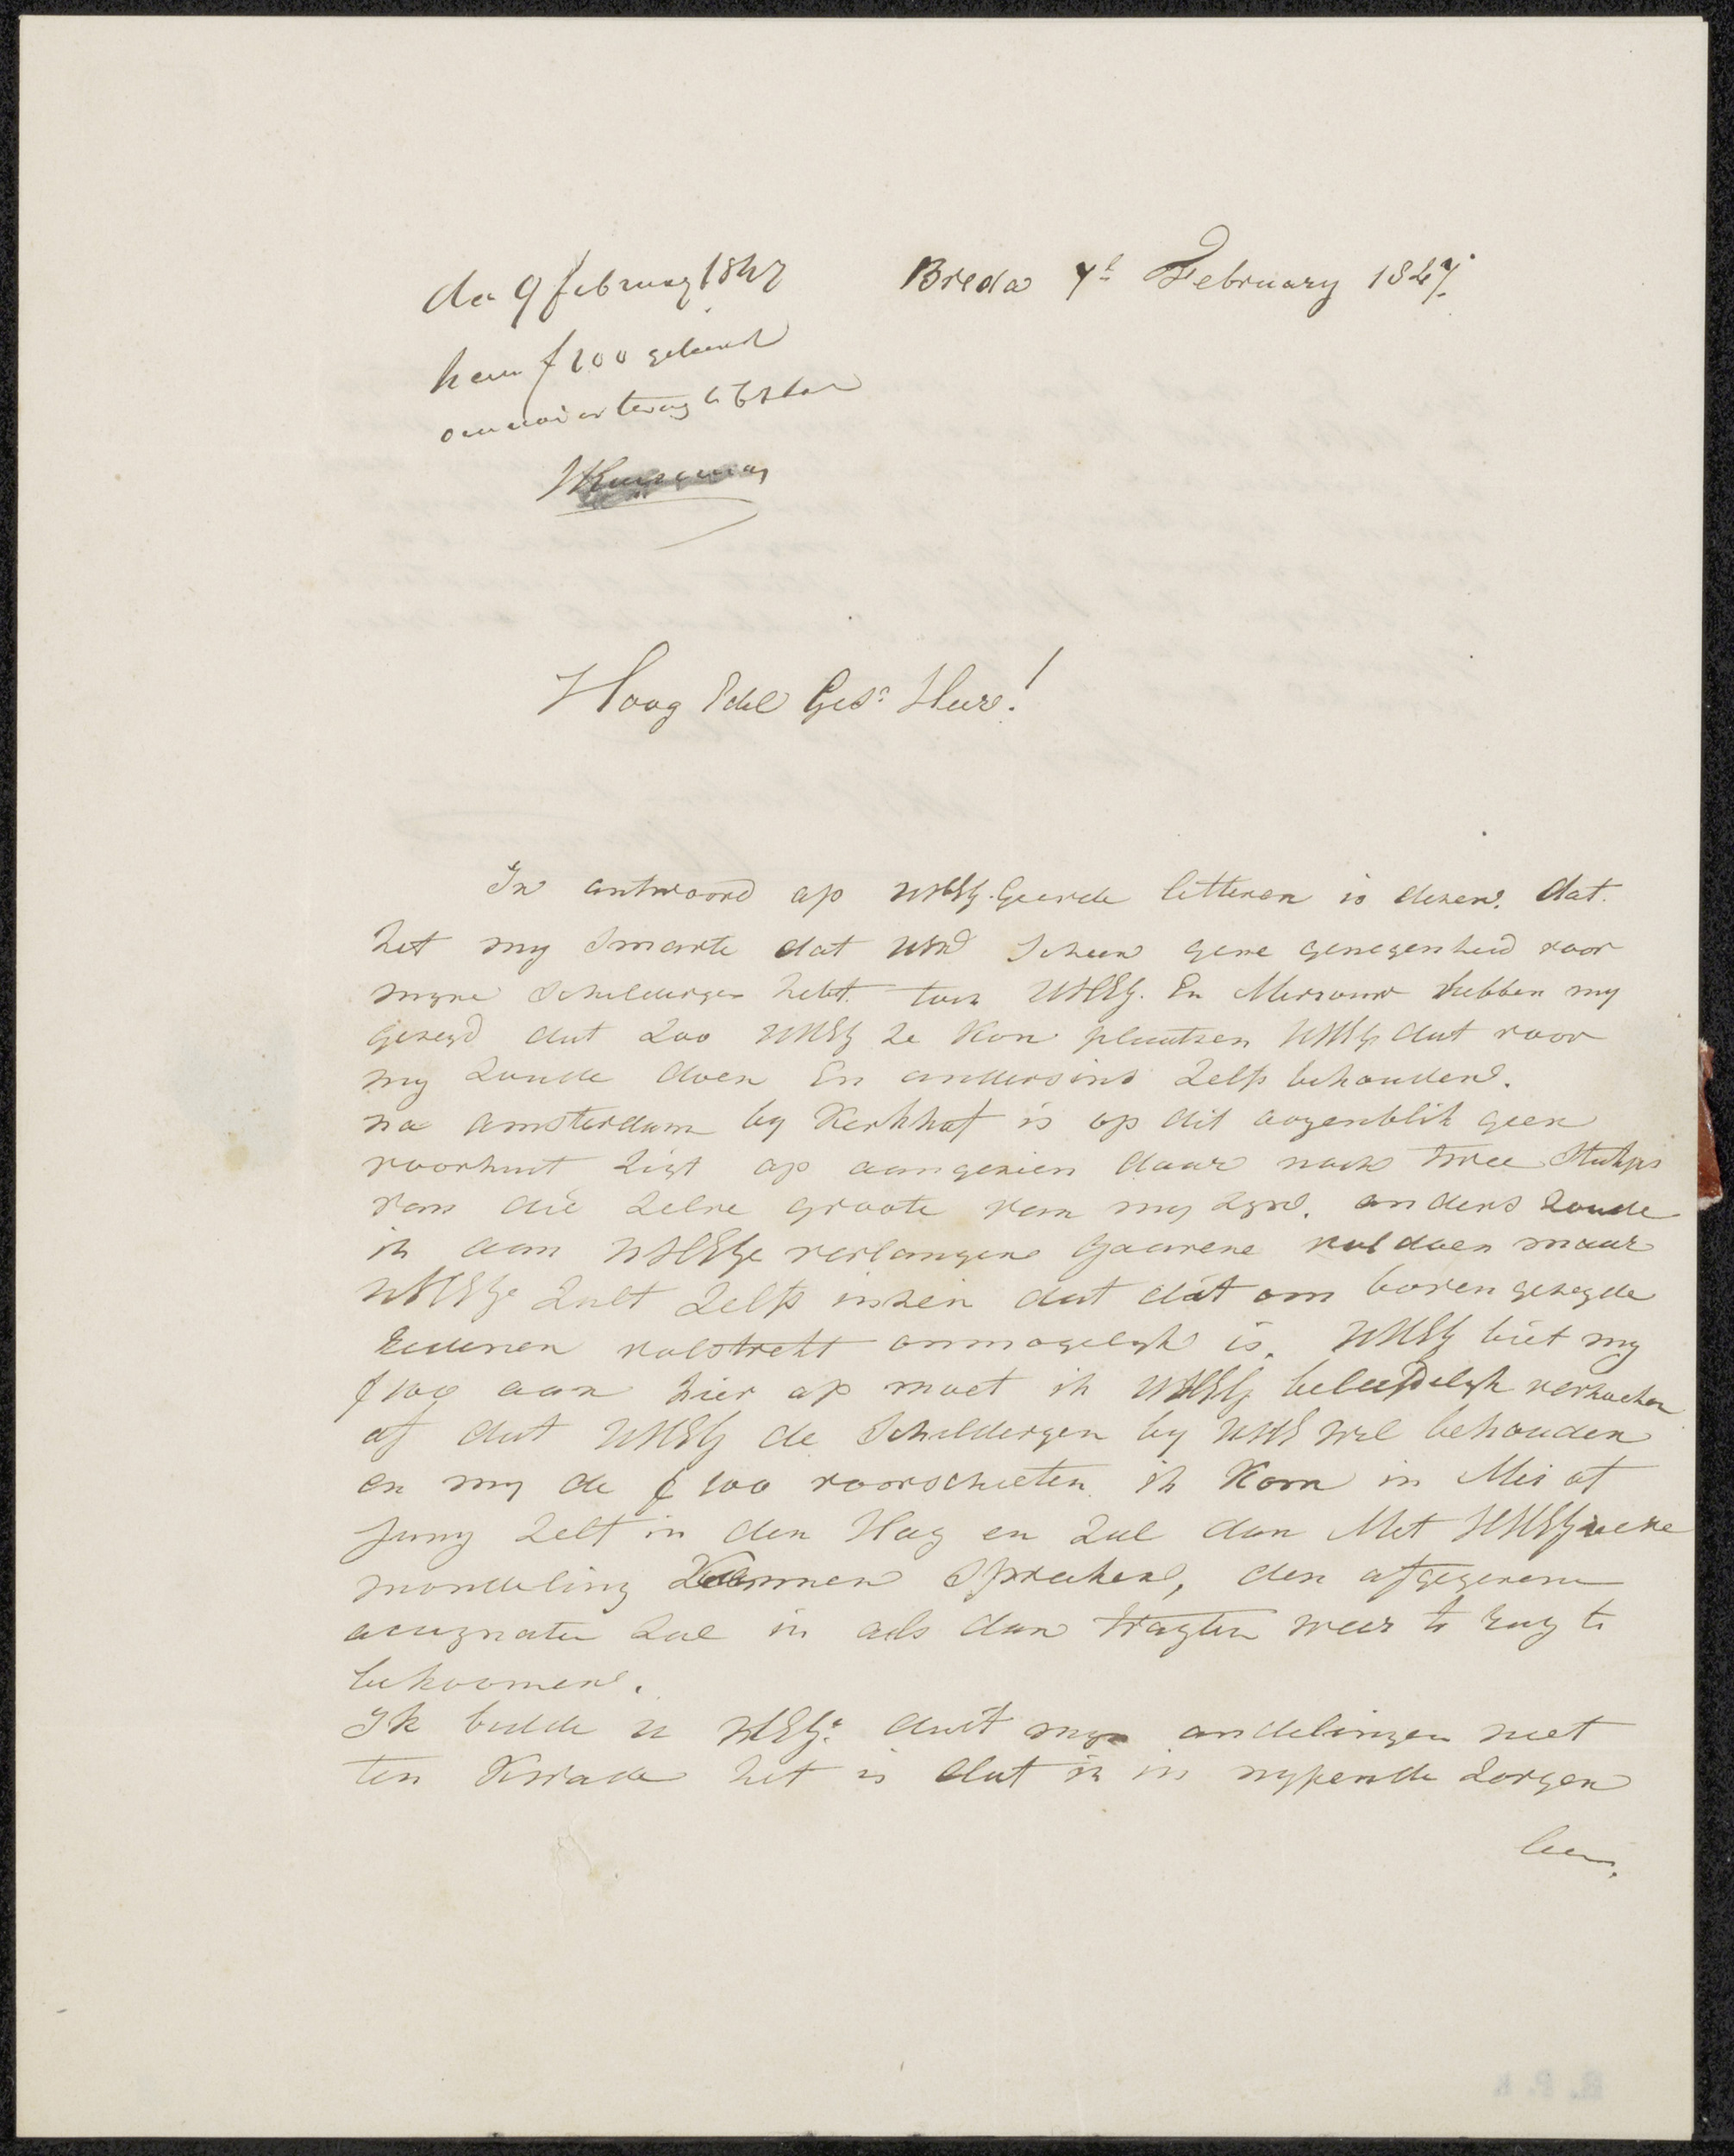 de 9 february 1847
hem f 100 geleend
om nooit terug te
Breda 7e February 1847.
Hoog Edel Ges. Heer!
In antwoord op UHEG. Geerde letteren is dezen. dat.
het my smarte dat UEd scheen gene genegenheid voor
myne Schilderyen hebt. toch UHEG. En Mevrouw hebben my
gezegd dat zoo UHEG ze kon plaatsen UHEG dat voor
my zoude doen En andersins zelfs behouden.
na amsterdam by Kerkhof is op dit oogenblik geen
vooruit zigt op aangezien daar noch twee Stukjes
van die zelve groote van my zyn. anders zoude
ik aan UHEGe verlangen gaarene voldoen maar
UHEGe zult zelfs inzien dat dat om boven gezegde
Redenen volstrekt onmogelyk is. UHEG biet my
f 100 aan hier op moet ik UHEG beleefdelyk verzoeken
of dat UHEG de Schilderyen by UHE wil behouden
en my de f 100 voorschieten. ik Kom in Mei of
Juny zelf in den Hag en zal dan Met UHEG
mondeling Kunnen Spreeken, den afgegeven
zal ik als dan tragten weer te rug te
bekoomen.
Ik bidde u HEG. duit myn andelingen niet
ten Kwade het is dat ik in nypende zorgen